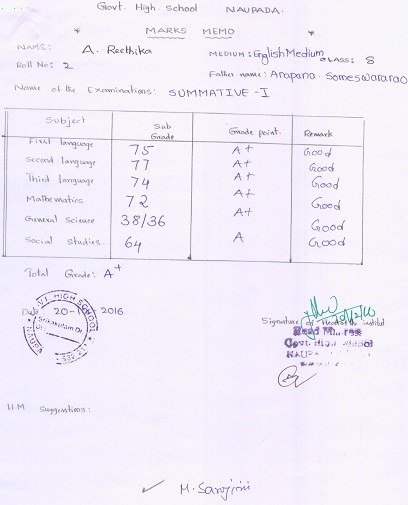 Govt. High. School NAUPADA.
MARKS MEMO
NAME: A. Reethika MEDIUM: English Medium CLASS: 8
Roll No: 2 Father name: Anapana. Someswararao
Name of the Examinations: SUMMATIVE - I
Subject Sub Grade Grade point. Remark
First language 75 A+ Good
Second language 77 A+ Good
Third language 74 A+ Good
Mathematics 72 A+ Good
General Science 38/36 A+ Good
Social Studies. 64 A Good
Total Grade: A+
HIGH SCHOOL
Srikakulam Di
Date 20-1 2016
Signature of Head of the institut
Govt High School
H.M Suggestions:
M. Sarojini